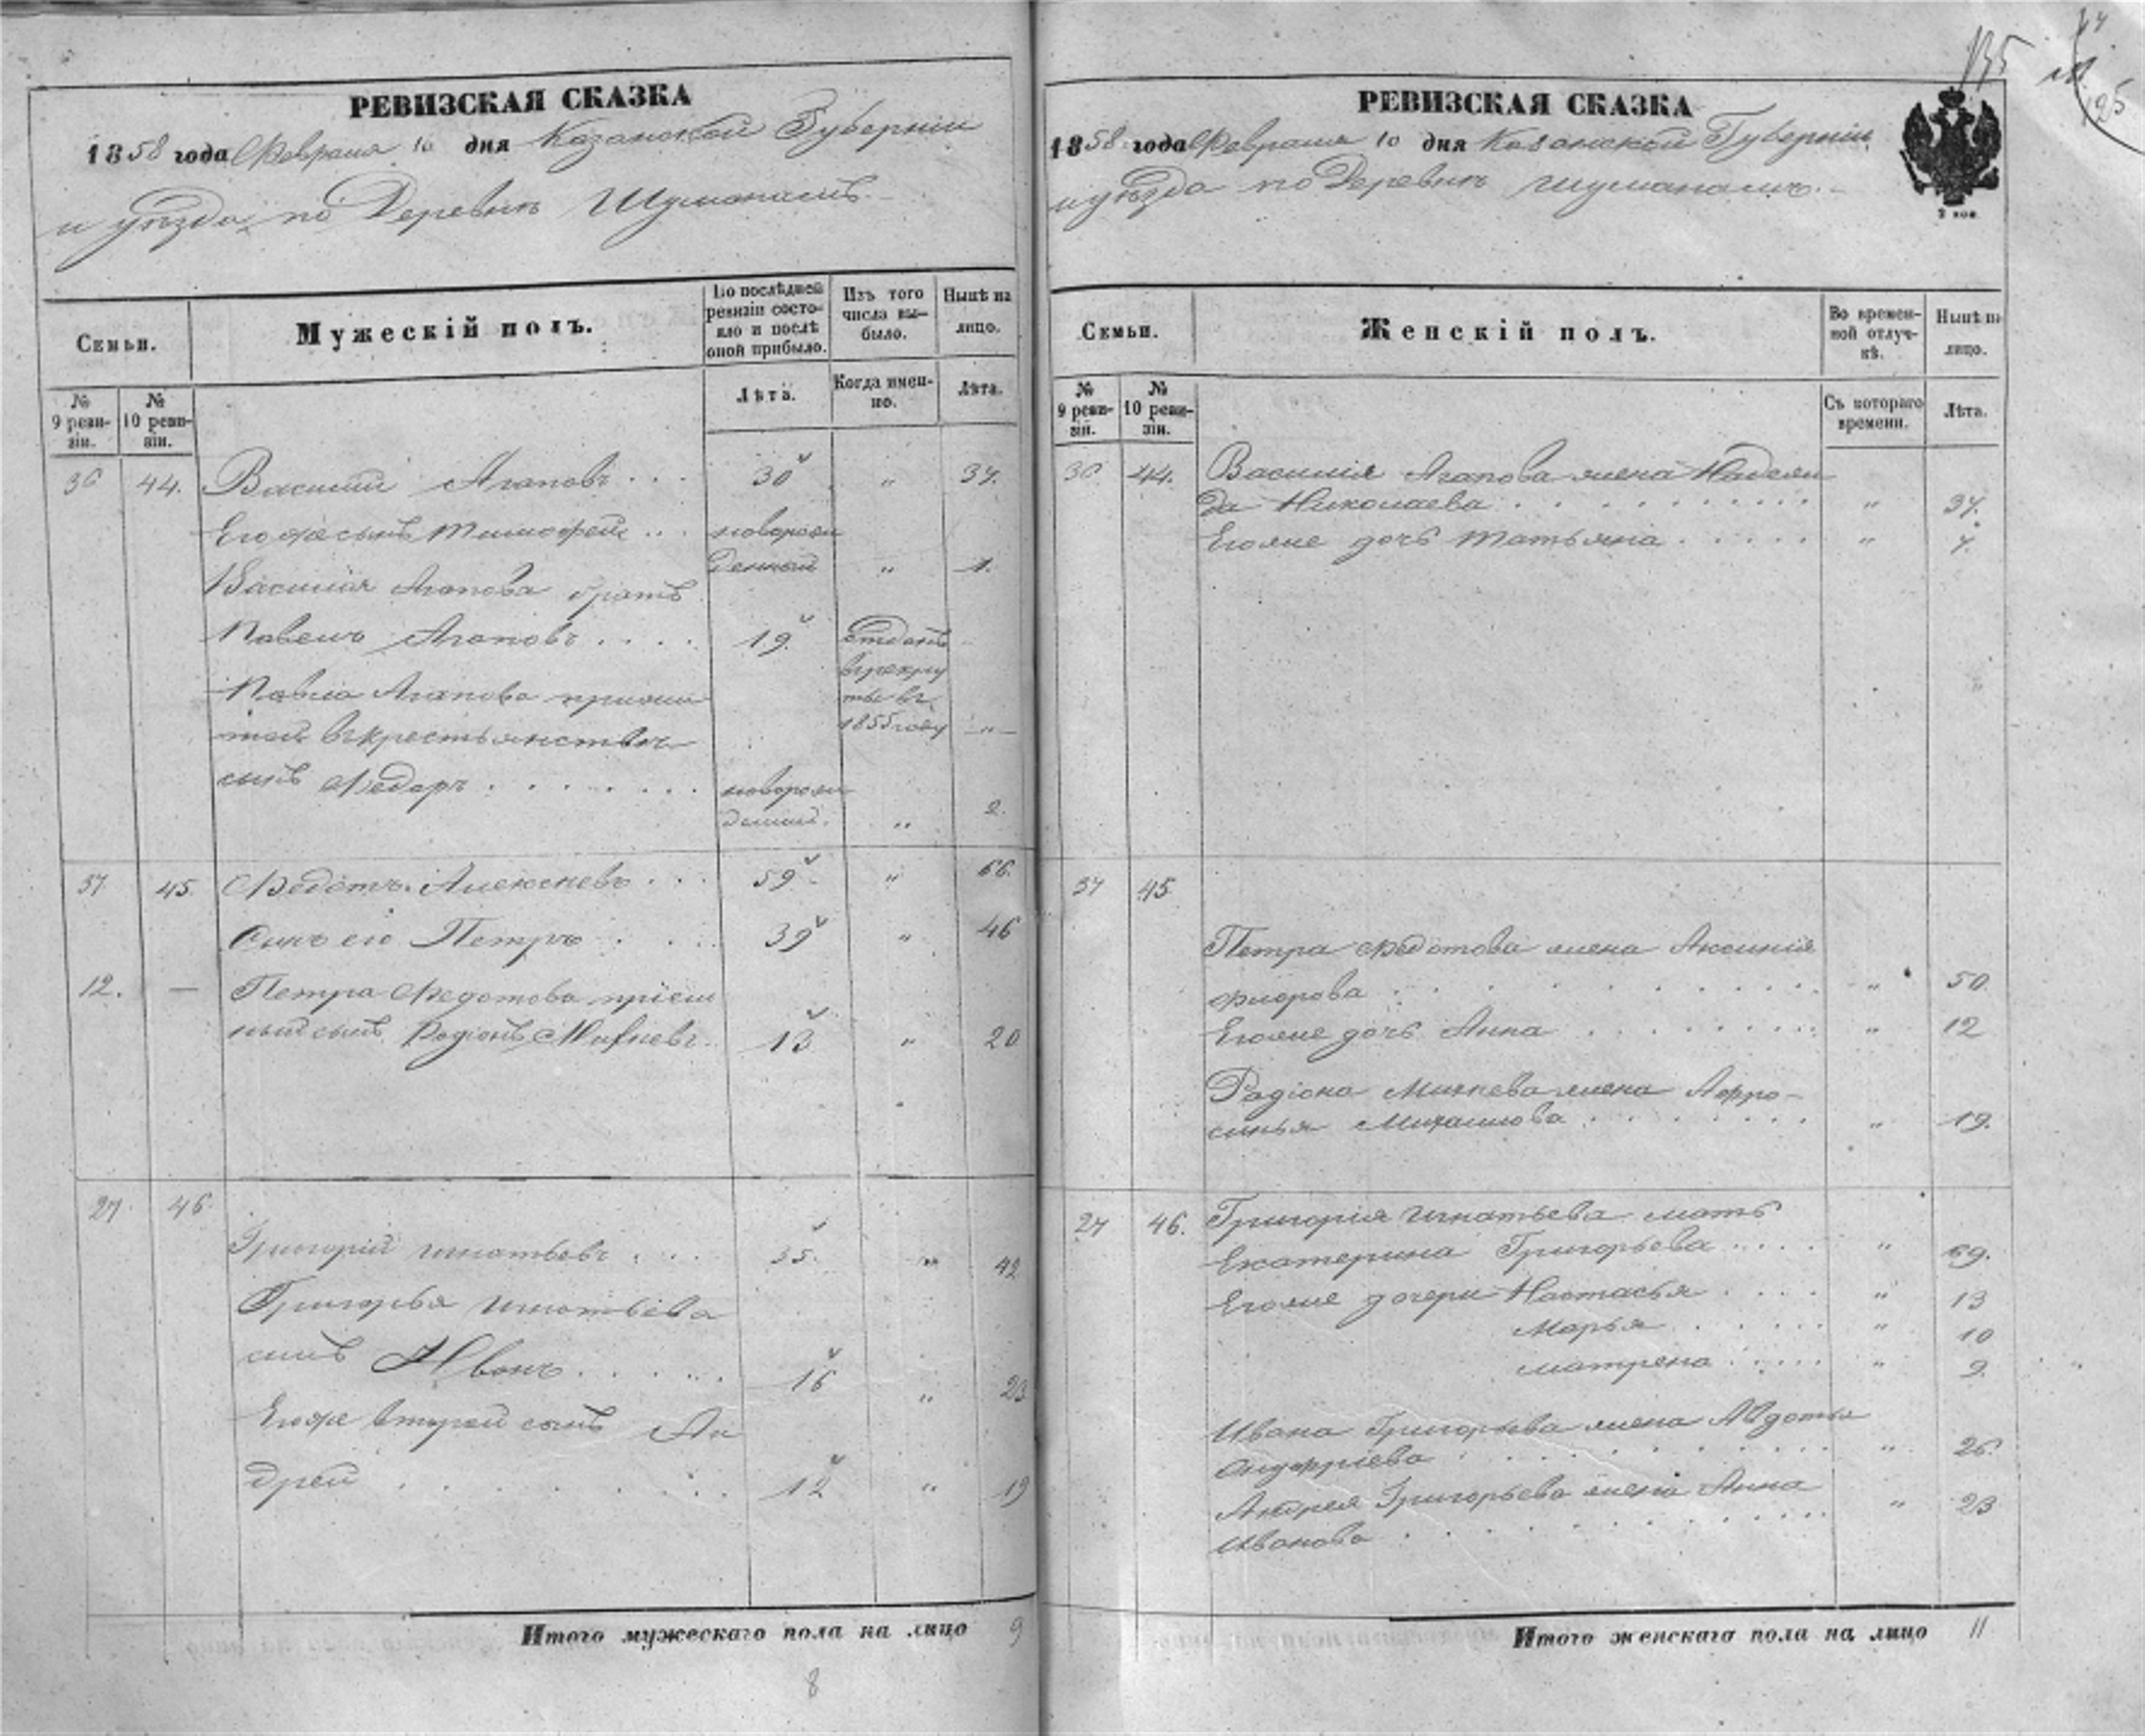 РЕВИЗСКАЯ СКАЗКА
1858 года Февраля 10 дня Казанской Губернiи
и уѣзда, по Деревнѣ Шуманамъ
Семьи.
Мужескiй полъ.
По послѣдней ревизiи состояло и послѣ оной прибыло.
Изъ того числа выбыло.
Нынѣ на лицо.
№ 9 ревизiи.
№ 10 ревизiи.
Лѣта.
Когда именно.
Лѣта.
36 44. Василiй Агаповъ . . . 30 " 37.
Его же сынъ Тимофей . . новорожденный " 1.
Василiя Агапова братъ
Павелъ Агаповъ . . . . 19. отданъ в рекруты въ 1855 году "
Павла Агапова прижитой в крестьянствѣ
сынъ Федоръ . . . . . . . новорожденный. " 2.
37 45. Федотъ Алексѣевъ . . . 59 " 66.
Сынъ его Петръ . . . . 39 " 46
12. — Петра Федотова прiемный сынъ Родiонъ Михѣевъ. 13 " 20
27. 46. Григорiй Игнатьевъ . . . 35. " 42
Григорья Игнатьева
сынъ Иванъ . . . . . 16 " 23
Его же второй сынъ Андрей . . . . . . . 12 " 19
Итого мужескаго пола на лицо 9
8
РЕВИЗСКАЯ СКАЗКА
1858 года Февраля 10 дня Казанской Губернiи
и уѣзда по Деревнѣ Шуманамъ.
195
125
Семьи.
Женскiй полъ.
Во временной отлучкѣ.
Нынѣ на лицо.
№ 9 ревизiи.
№ 10 ревизiи.
Съ котораго времени.
Лѣта.
36. 44. Василiя Агапова жена Надежда Николаева . . . . . . . . . " 37.
Его же дочь Татьяна . . . . . " 7.
37 45
Петра Федотова жена Аксинiя
Флорова . . . . . . . . . " 50
Его же дочь Анна . . . . . . . " 12
Радiона Михѣева жена Афросинья Михайлова . . . . . . . " 19.
27 46. Григорiя Игнатьева мать
Екатерина Григорьева . . . . " 69.
Его же дочери Настасья . . . . " 13
Марья . . . . . " 10
Матрена . . . . . " 9.
Ивана Григорьева жена Авдотья
Онуфрiева . . . . . . . . " 26.
Андрея Григорьева жена Анна
Иванова . . . . . . . . . " 23
Итого женскаго пола на лицо 11